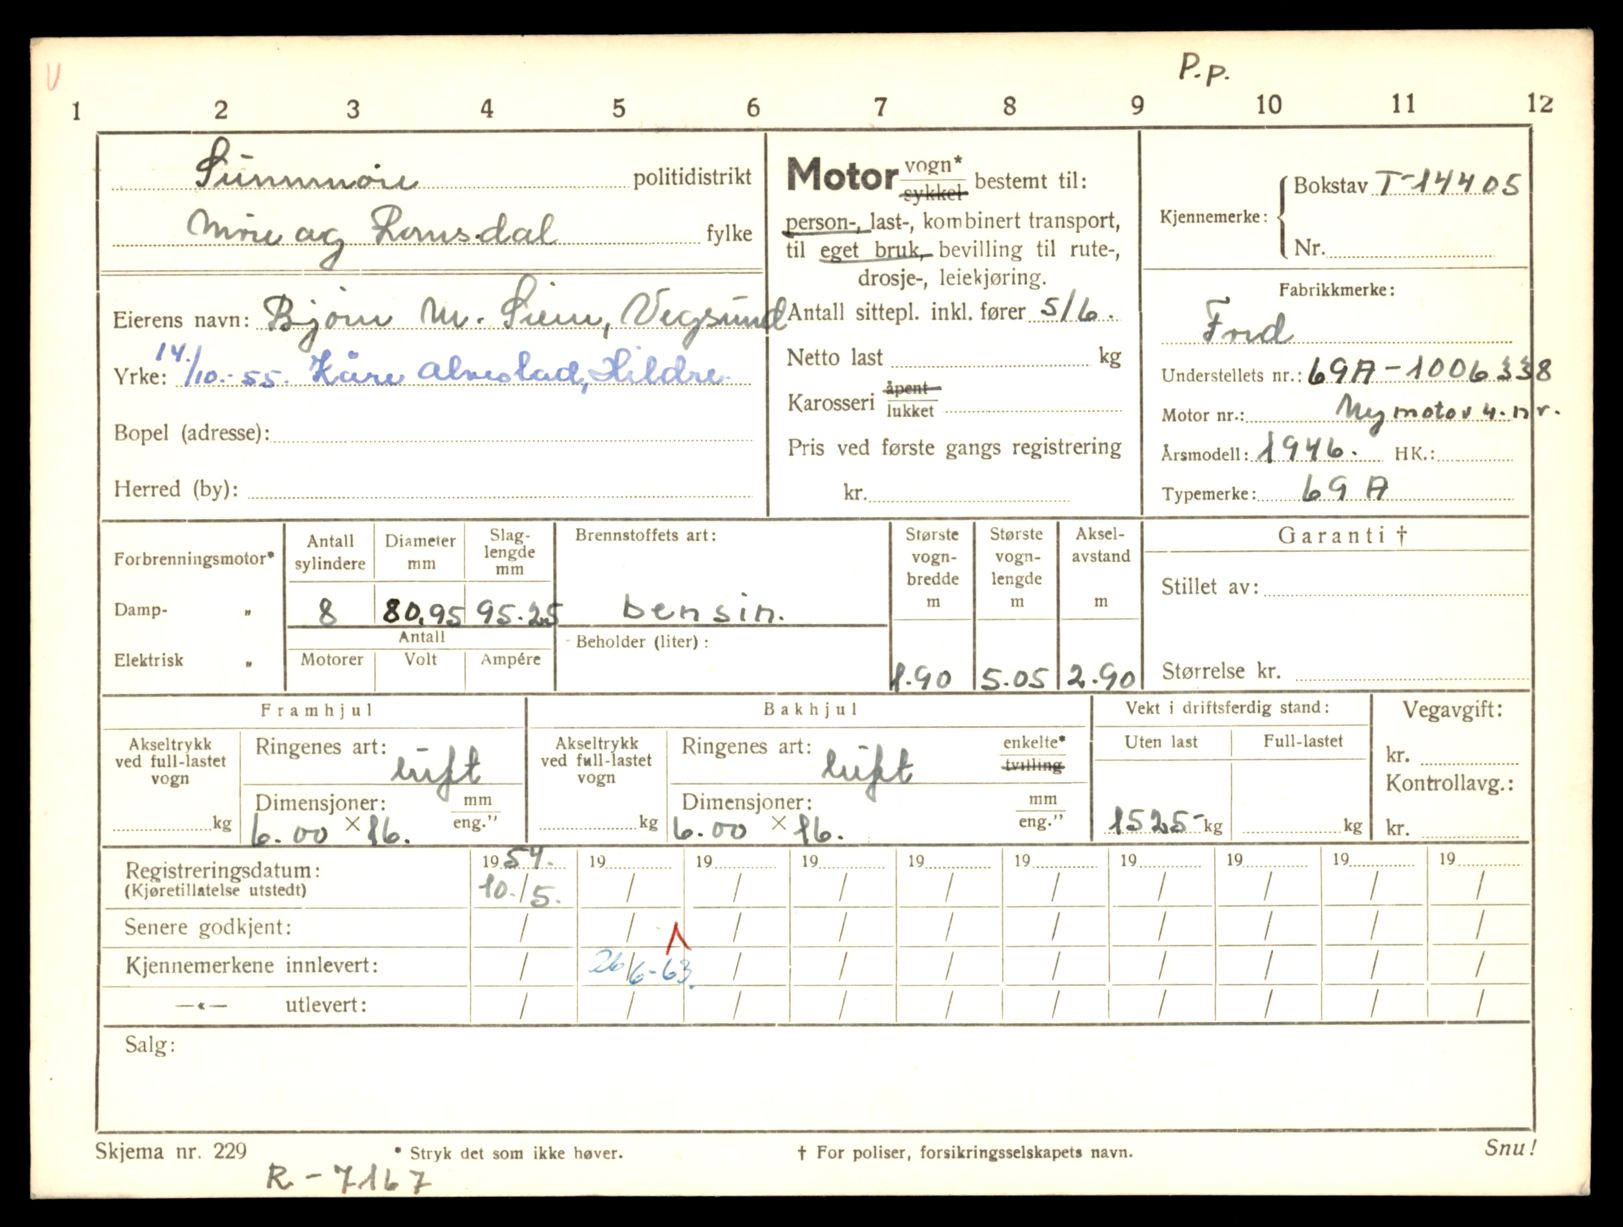 P.p.
1 2 3 4 5 6 7 8 9 10 11 12
Sunnmøre politidistrikt
Møre og Romsdal fylke
Eierens navn: Bjørn M. Siem, Vegsund
14/10.-55. Kåre Alnestad, Hildre.
Yrke:
Bopel (adresse):
Herred (by):
Motor vogn* sykkel bestemt til:
person-, last-, kombinert transport,
til eget bruk, bevilling til rute-,
drosje-, leiekjøring.
Antall sittepl. inkl. fører 5/6.
Netto last kg
Karosseri åpent lukket
Pris ved første gangs registrering
kr.
Kjennemerke: Bokstav T-14405
Nr.
Fabrikkmerke:
Ford
Understellets nr.: 69A-1006338
Motor nr.: Ny motor u.nr.
Årsmodell: 1946. HK.:
Typemerke: 69 A
Forbrenningsmotor*
Damp- „
Elektrisk „
Antall sylindere
8
Diameter mm
80,95
Slag-lengde mm
95.25
Antall
Motorer Volt Ampére
Brennstoffets art:
bensin.
Beholder (liter):
Største vogn-bredde m
1.90
Største vogn-lengde m
5.05
Aksel-avstand m
2.90
Garanti †
Stillet av:
Størrelse kr.
Framhjul
Akseltrykk ved full-lastet vogn
kg
Ringenes art: luft
Dimensjoner: mm eng.”
6.00 × 16.
Bakhjul
Akseltrykk ved full-lastet vogn
kg
Ringenes art: luft
enkelte* tvilling
Dimensjoner: mm eng.”
6.00 × 16.
Vekt i driftsferdig stand:
Uten last Full-lastet
1525- kg kg
Vegavgift:
kr.
Kontrollavg.:
kr.
Registreringsdatum: 1954. 19 19 19 19 19 19 19 19 19
(Kjøretillatelse utstedt) 10./5. / / / / / / / / /
Senere godkjent: / / / / / / / / / /
Kjennemerkene innlevert: / 26/6-63. / / / / / / / /
—«— utlevert: / / / / / / / / / /
Salg:
Skjema nr. 229 * Stryk det som ikke høver. † For poliser, forsikringsselskapets navn. Snu!
R-7167